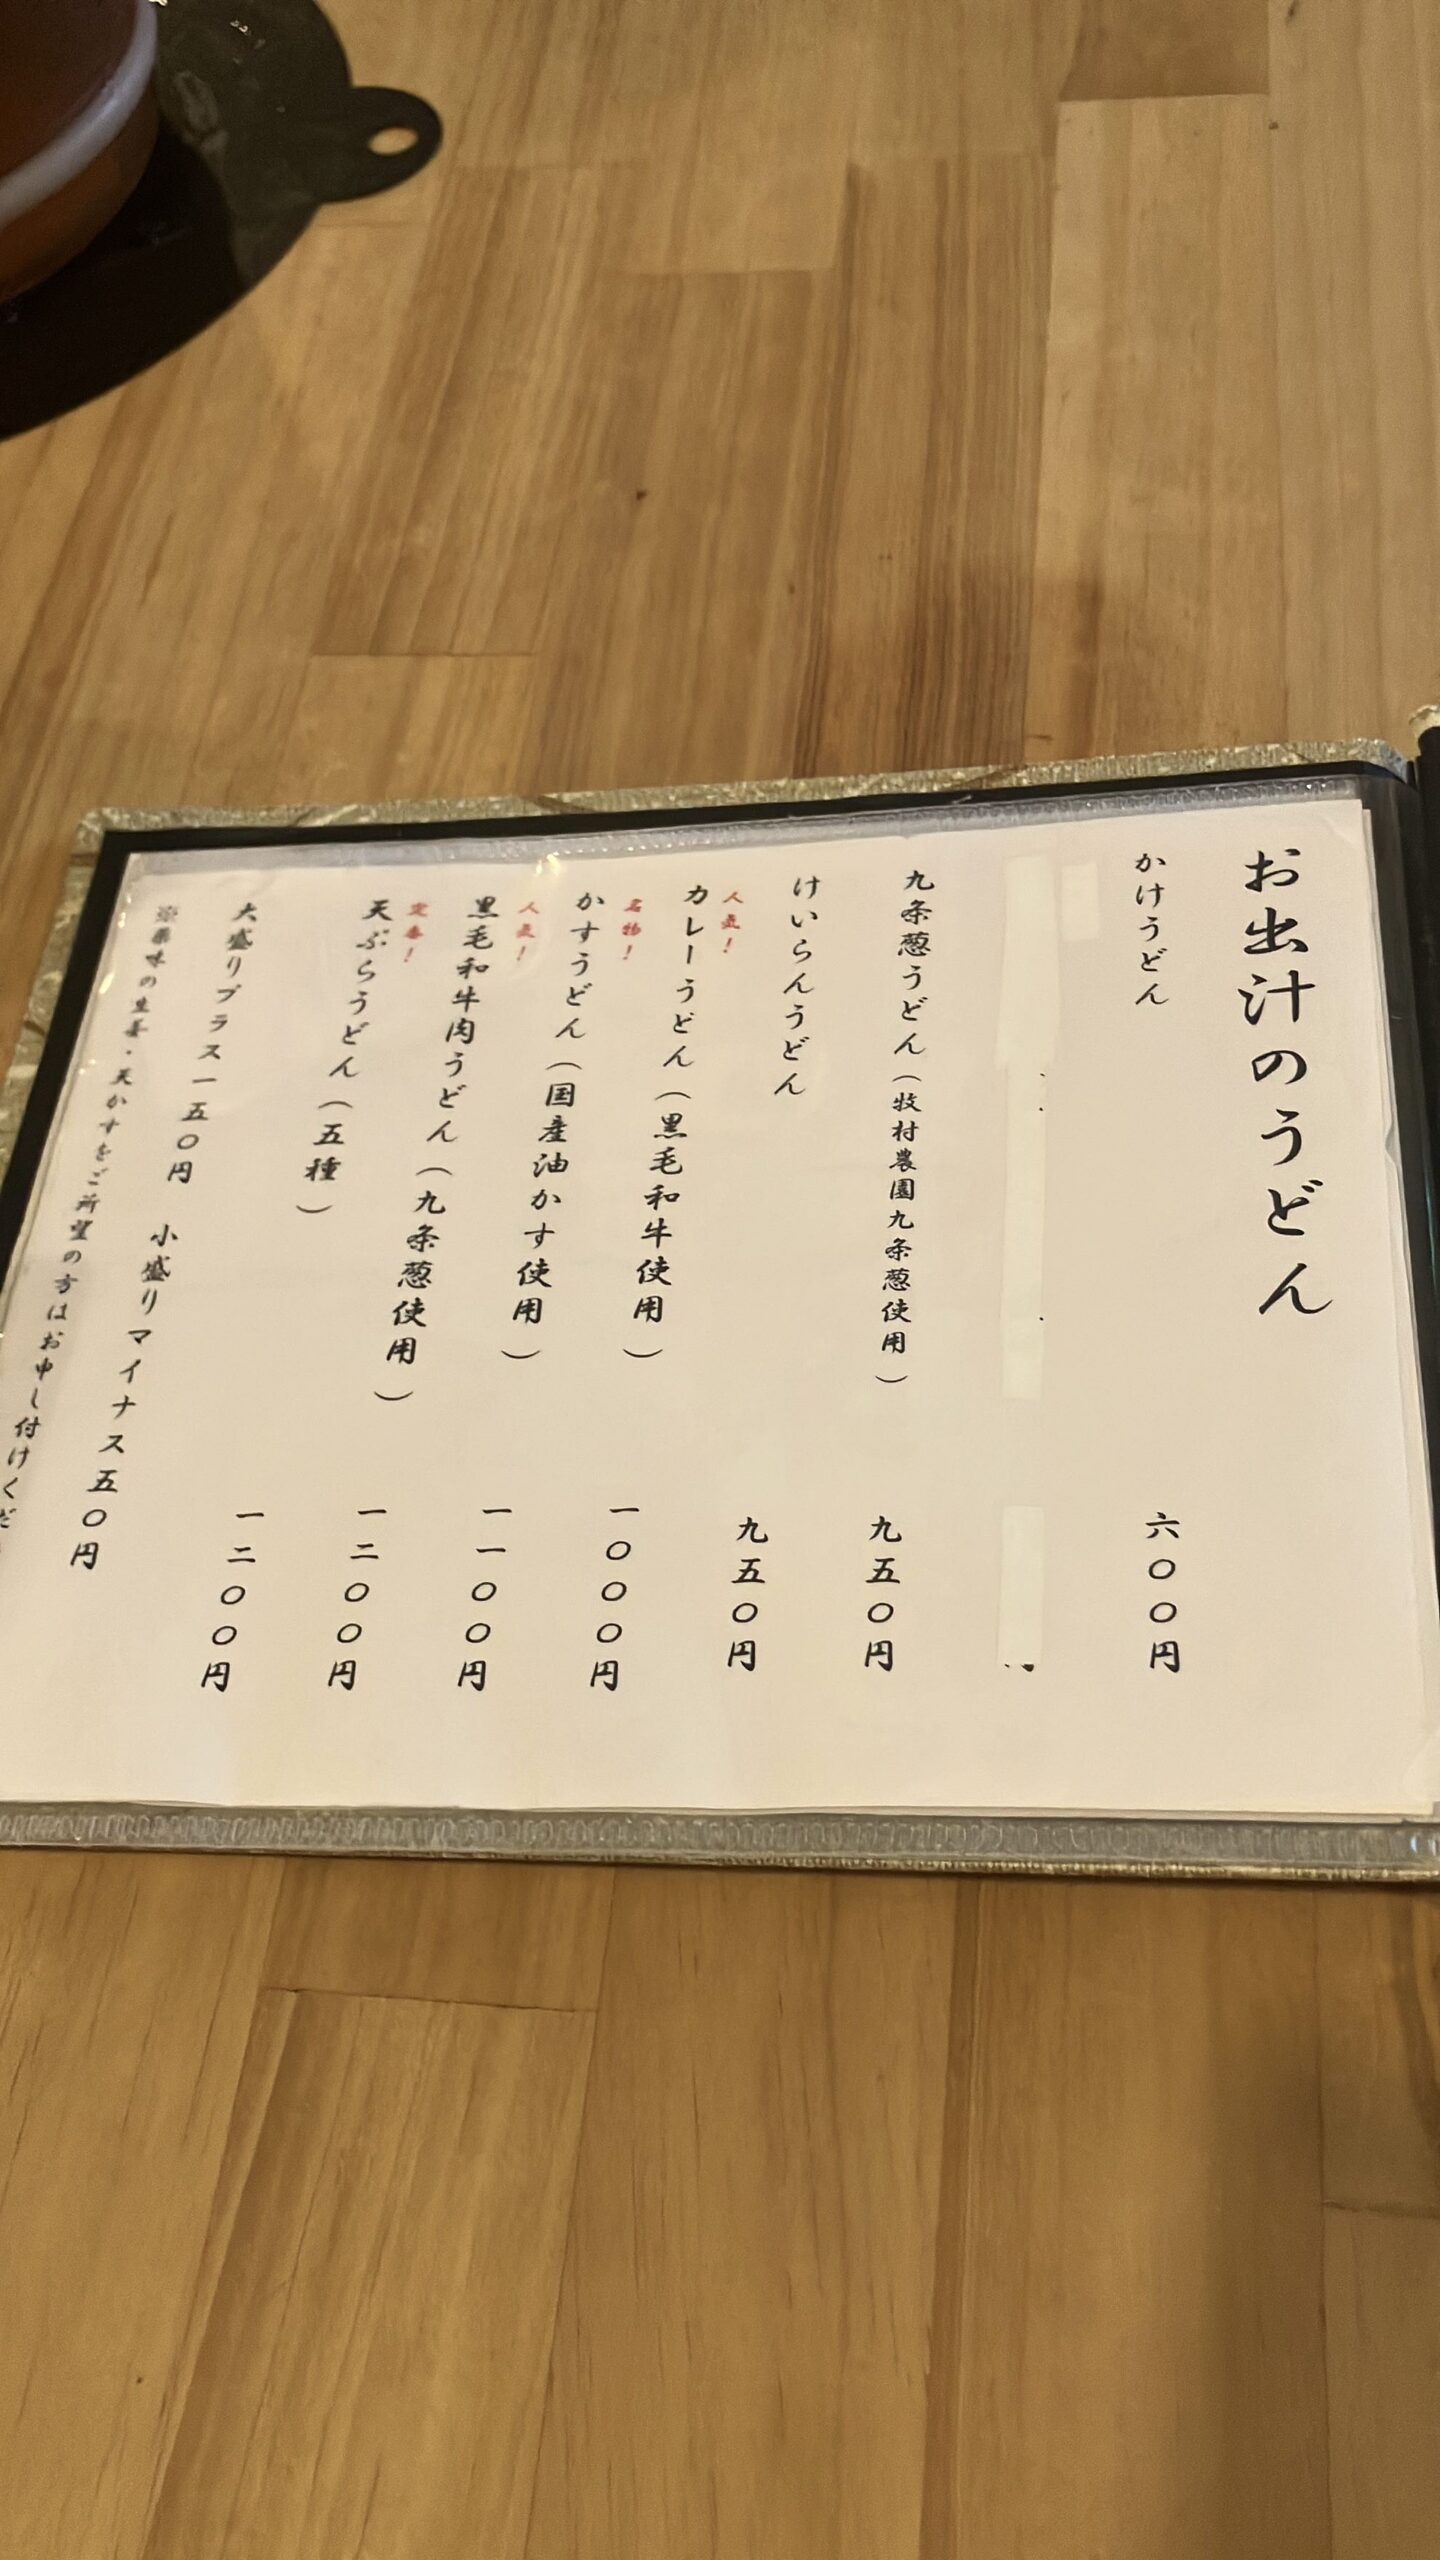 お出汁のうどん
かけうどん
六〇〇円
九条葱うどん(牧村農園九条葱使用)
九五〇円
けいらんうどん
九五〇円
人気!
カレーうどん(黒毛和牛使用)
一〇〇〇円
名物!
かすうどん(国産油かす使用)
一一〇〇円
人気!
黒毛和牛肉うどん(九条葱使用)
一二〇〇円
定番!
天ぷらうどん(五種)
一二〇〇円
大盛りプラス一五〇円 小盛りマイナス五〇円
※薬味の生姜・天かすをご所望の方はお申し付けくだ